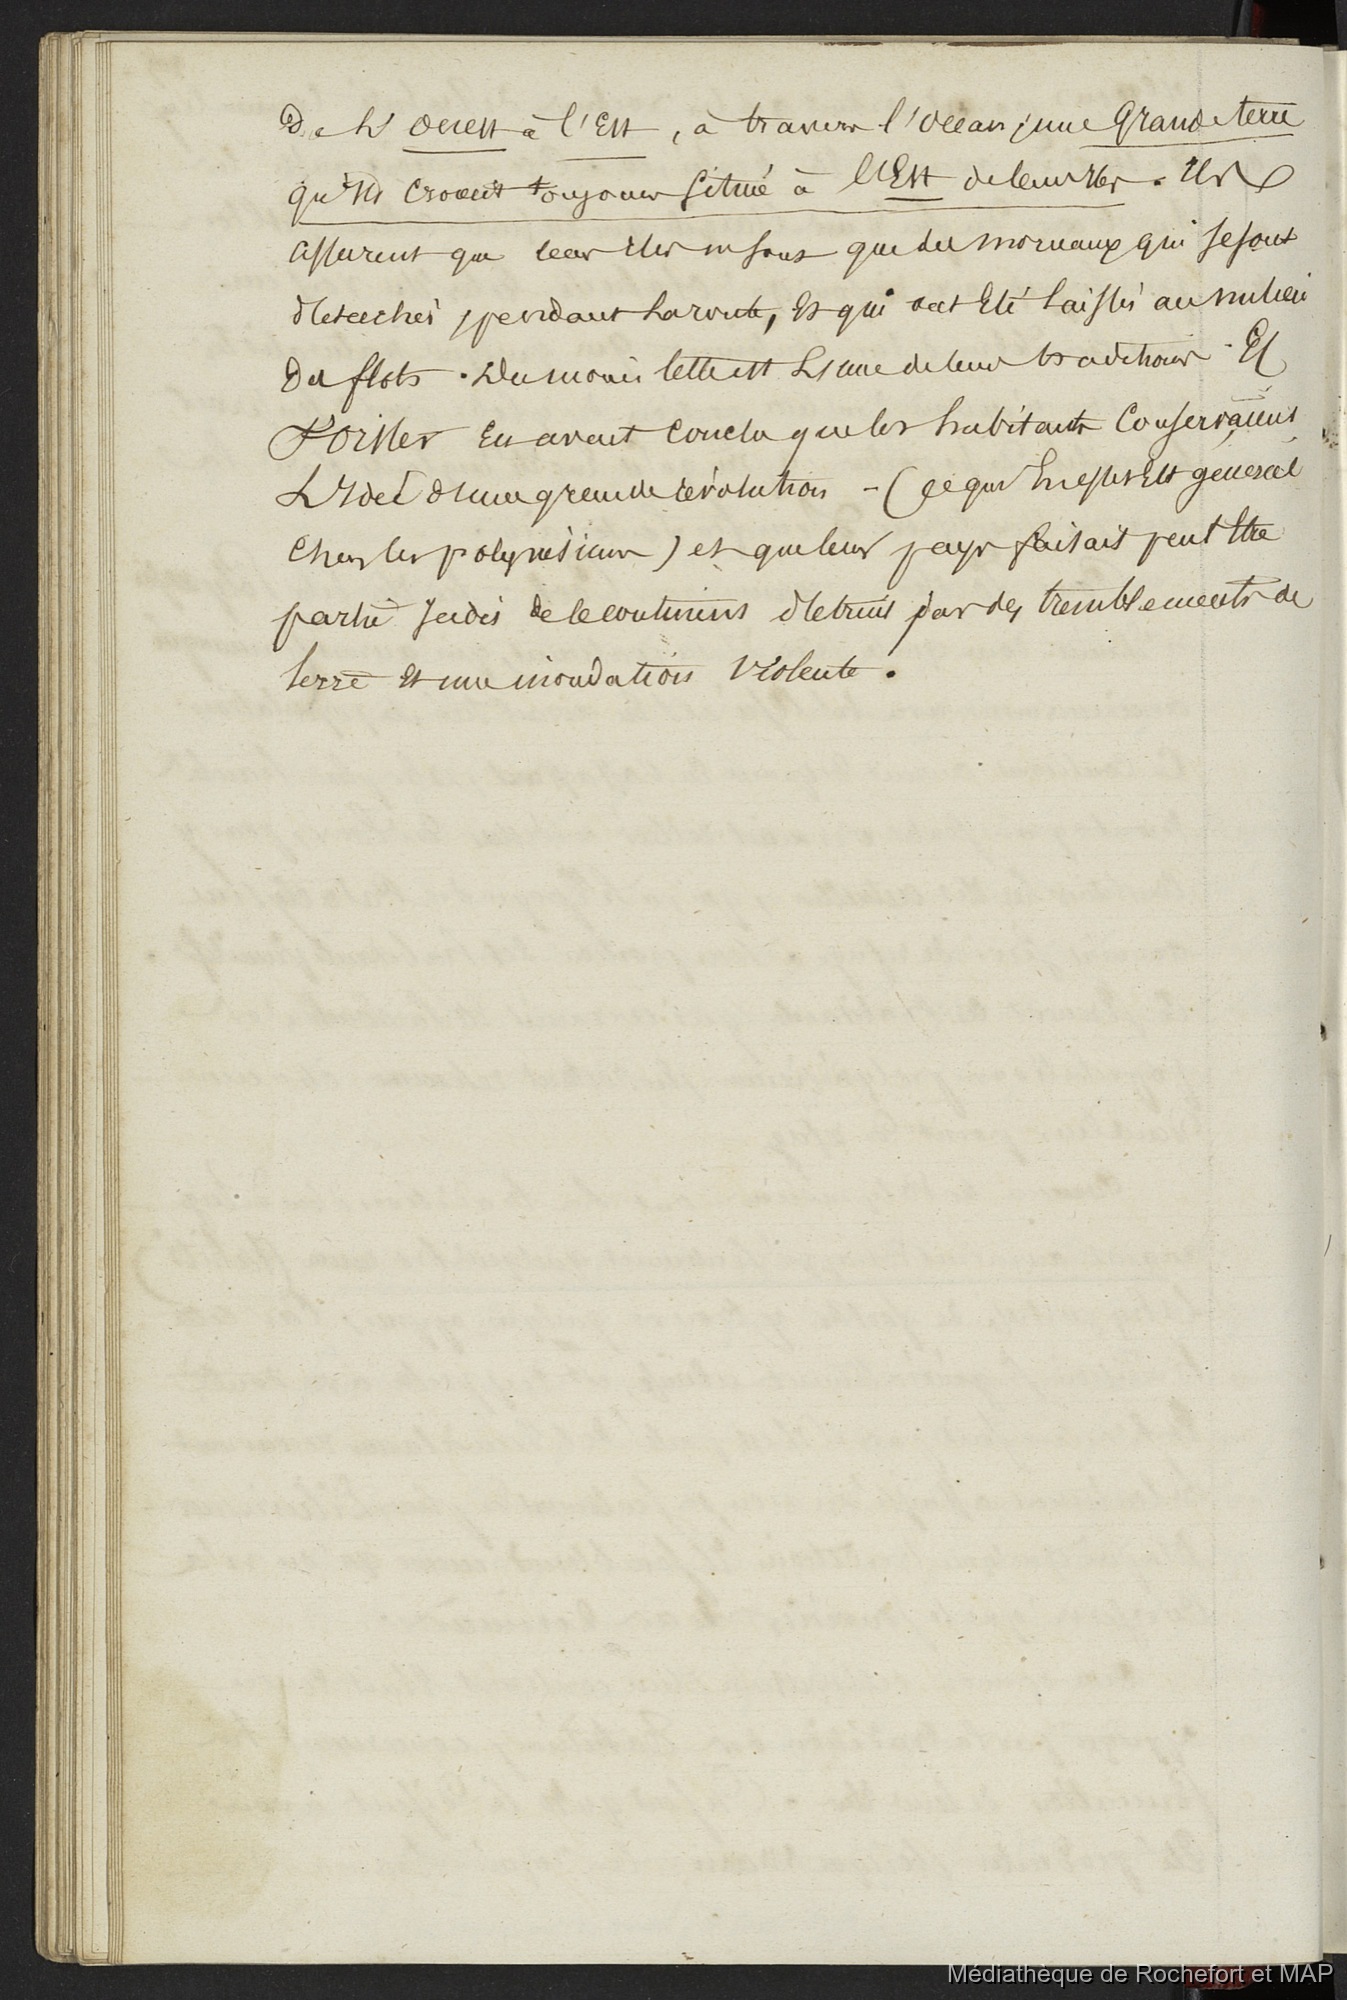 De L'Ouest à l'Est, à travers l'Océan, une Grande terre
qu'ils croient toujours située à l'Est de leurs Iles. Ils
assurent que leurs Iles ne sont que des morceaux qui se sont
détachés, pendant la route, Et qui ont Eté laissés au milieu
des flots. Du moins telle est L'une de leurs traditions. Et
Forster En avait conclu que les habitants Conservaient
L'Idée d'une grande révolution - (ce qui En effet Est général
Chez les polynésiens) et que leur pays faisait peut Etre
partie Jadis de le continent détruit par des tremblements de
terre Et une inondation Violente.
Médiathèque de Rochefort et MAP